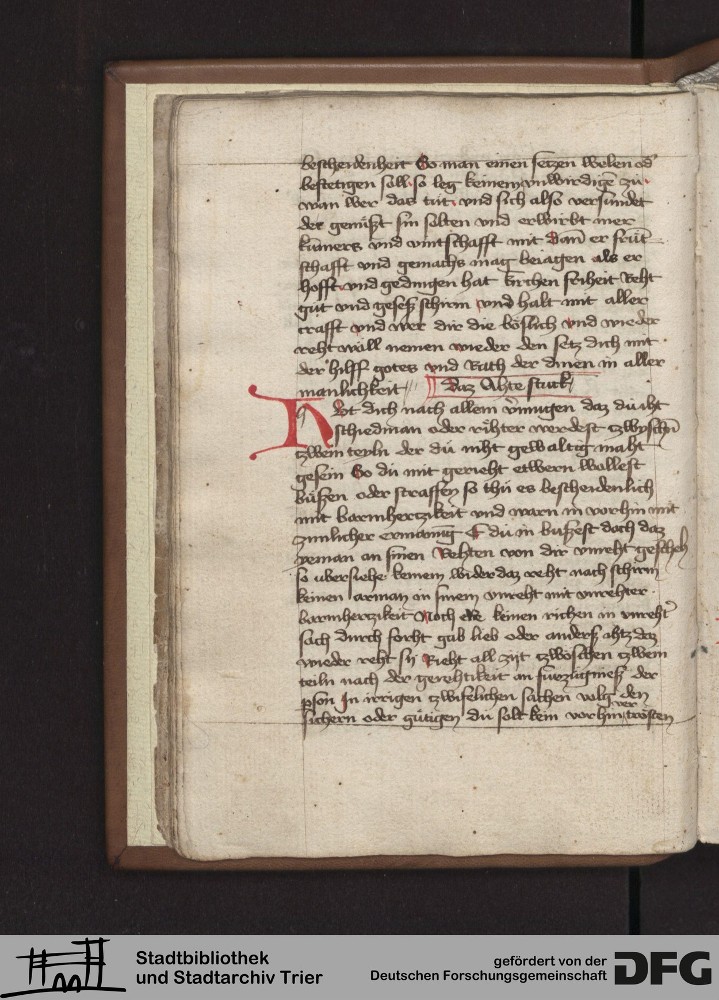 bescheidenheit So man einen setzen welen od'
bestetigen soll so leg keinem vnwirdigē zů
wan wer das tůt vnd sich also versundet
der genüßt sin selten vnd erwirbt mer
kūmers vnd vintschafft mit dan er frūt
schafft vnd gemachs mag beiagen als er
hofft vnd gedingen hat kirchen friheit Reht
gůt vnd geseß schirm vnd halt mit aller
crafft vnd wer dir die böslich vnd wieder
reht wöll nemen wieder den setz dich mit
der hilff gotes vnd Rath der dinen in aller
manlichkeit daz Ahte stuck
Hvt dich nach allem v'mugen daz du iht
schiedman oder rihter werdest tzwyschē
tzwein teyln der dü niht gewaltig maht
gesein So dü mit gerieht etwern wollest
büßen oder straffen so thü es bescheidenlich
mit barmhertzikeit vnd warn in vorhin mit
zimlicher ermanūg E du in bußest doch daz
yeman an sinen Rehten von dir vnreht gescheh
so ubersiehe keinem wider daz reht noch schirm
keinen arman in sinem vnreht mit vnrehter
barmhertzikeit Noch keinen richen in vnreht'
sach durch forht gab lieb oder anderß ihtz daz
wieder reht sy Rieht all zijt tzwöschen tzwein
teiln nach der gerehtikeit an furzugnieß der
pson In irrigen tzwifelichen sachen volg den
sichern oder gütigen du solt kein vorhin ver trösten
Stadtbibliothek
und Stadtarchiv Trier
gefördert von der
Deutschen Forschungsgemeinschaft
DFG